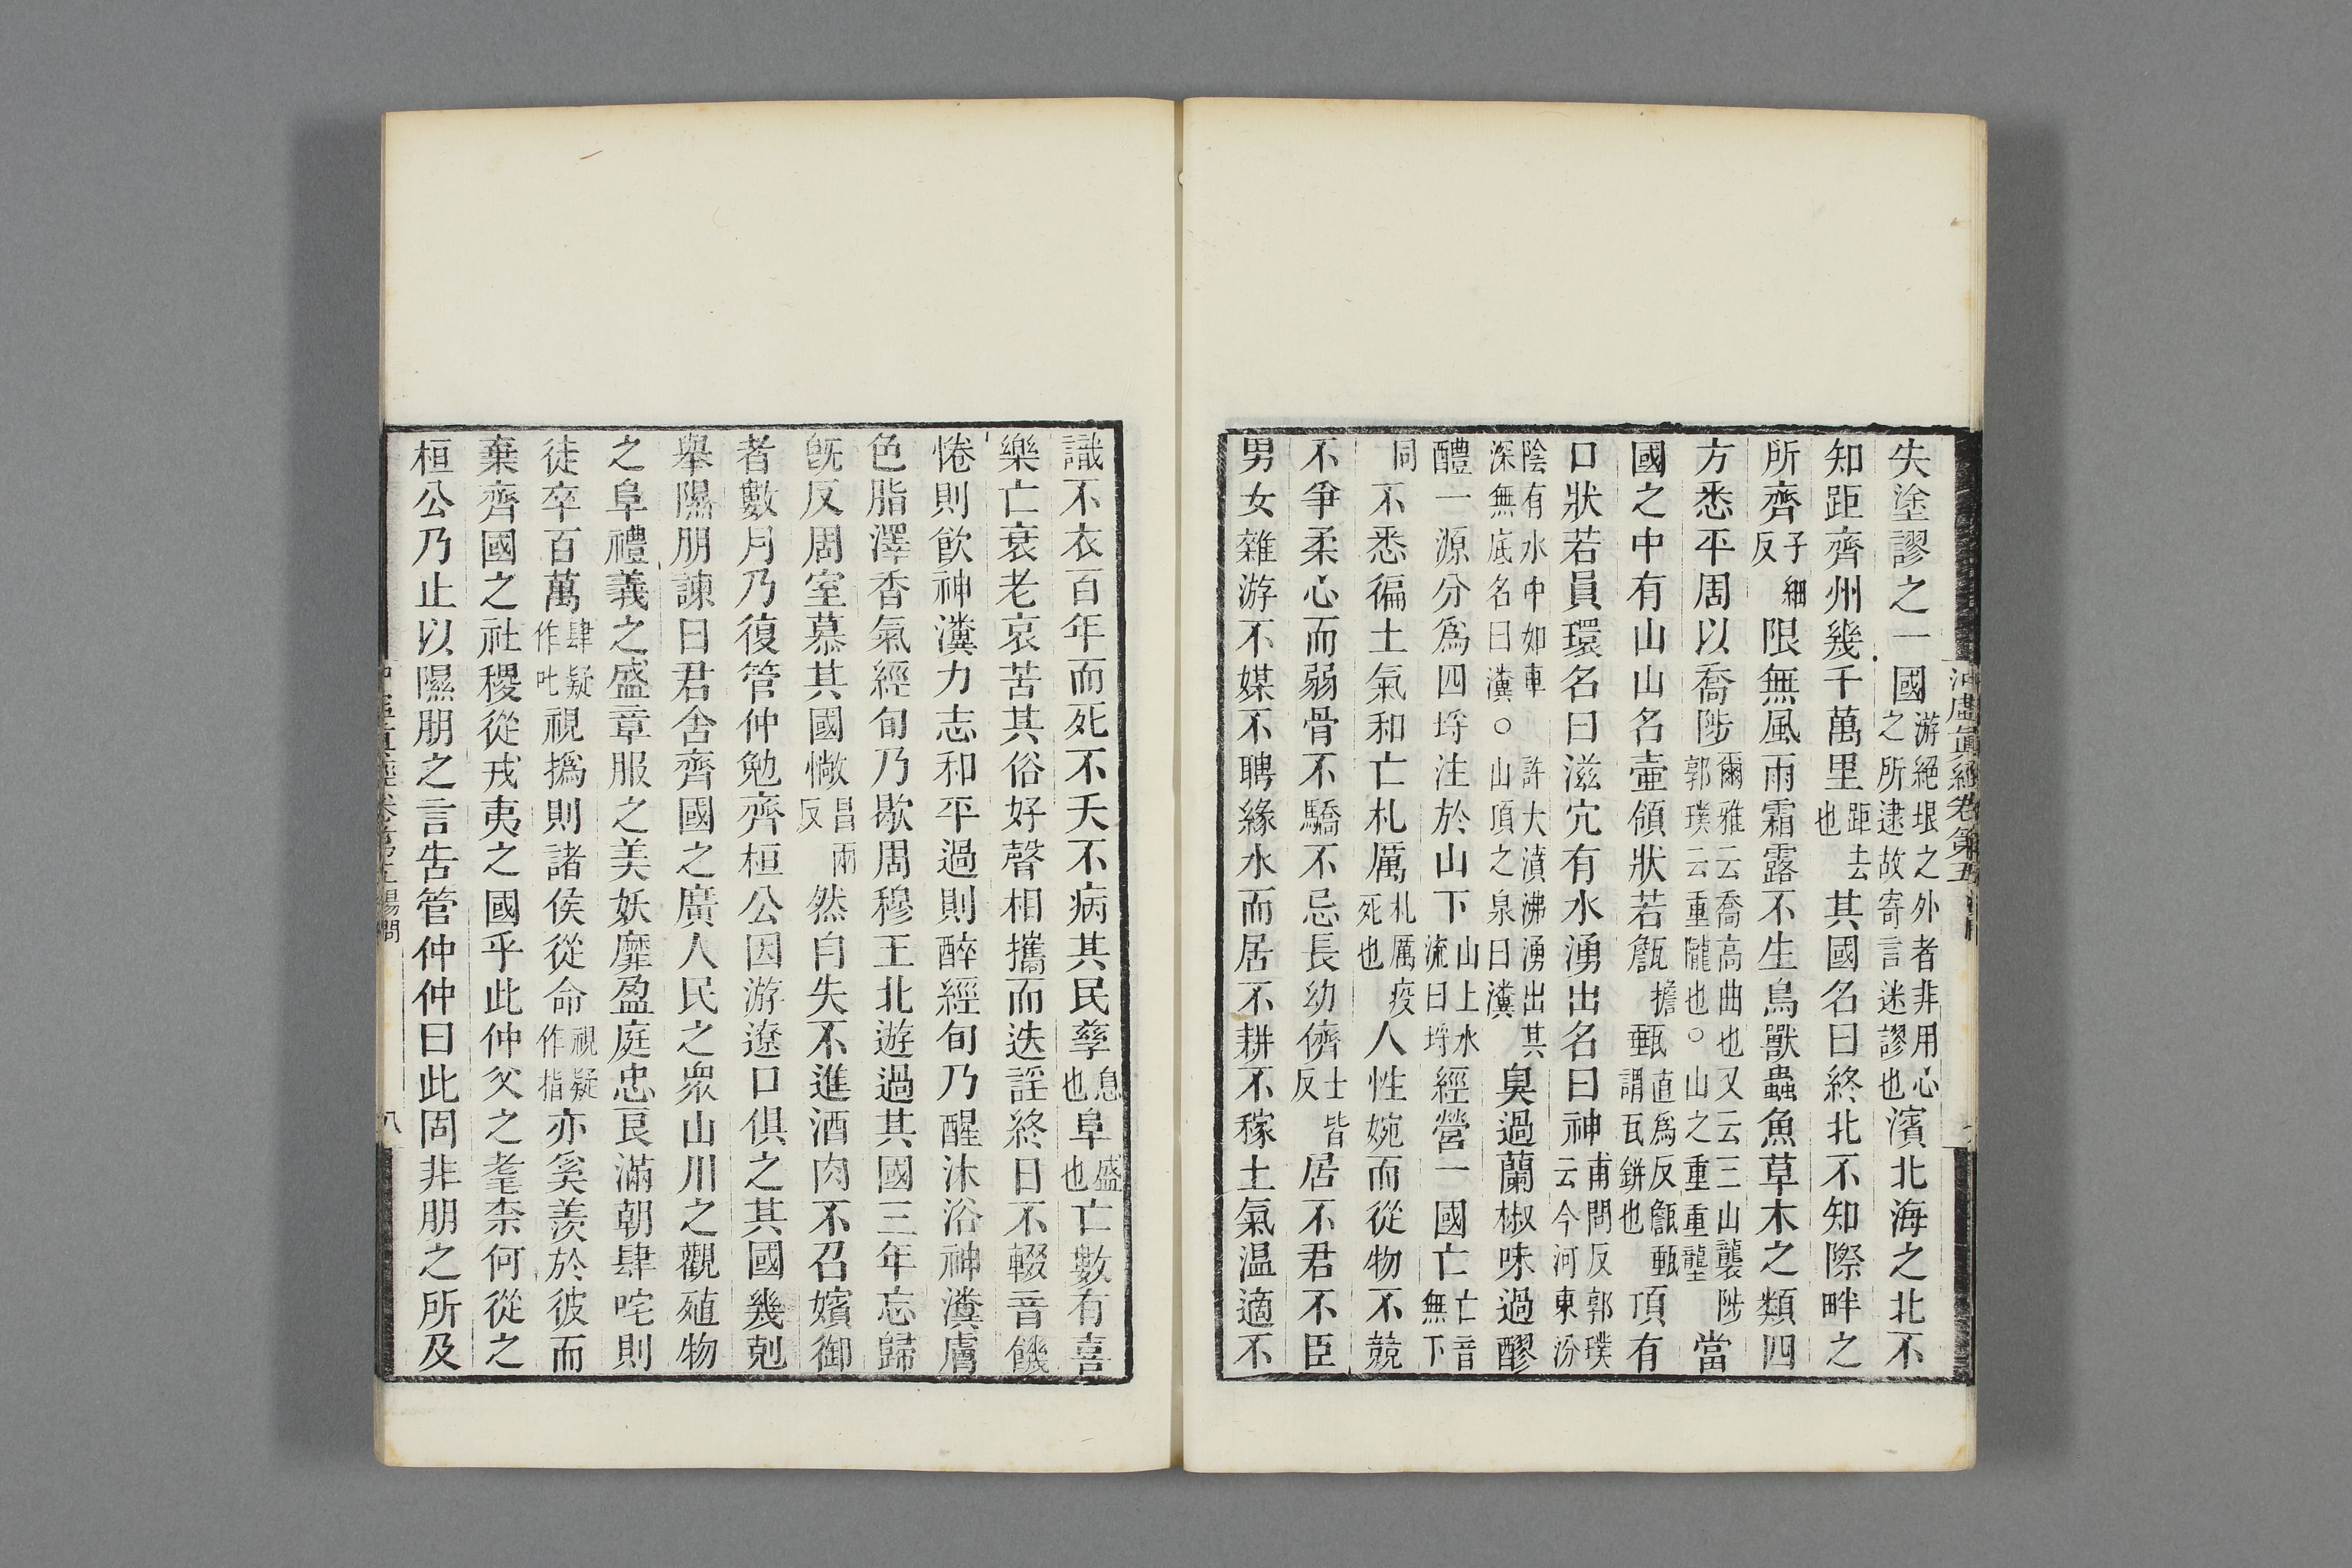 失塗謬之一國游絕垠之外者非用心之所逮故寄言迷謬也濱北海之北不
知距齊州幾千萬里距去也其國名曰終北不知際畔之
所齊子細反限無風雨霜露不生鳥獸蟲魚草木之類四
方悉平周以喬陟爾雅云喬高曲也又云三山襲陟郭璞云重隴也○山之重重壟當
國之中有山山名壷領狀若甔擔甀直爲反甔甀謂瓦缾也頂有
口狀若員環名曰滋穴有水湧出名曰神甫問反郭璞云今河東汾
陰有水中如車許大濆沸湧出其深無底名曰瀵○山頂之泉曰瀵臭過蘭椒味過醪
醴一源分爲四埒注於山下山上水流曰埒經營一國亡亡音無下
同不悉徧土氣和亡札厲札厲疫死也人性婉而從物不競
不爭柔心而弱骨不驕不忌長幼儕士皆反居不君不臣
男女雜游不媒不聘緣水而居不耕不稼土氣温適不
沖虛眞經卷第五
識不衣百年而死不夭不病其民孳息也阜盛也亡數有喜
樂亡衰老哀苦其俗好聲相攜而迭謡終日不輟音饑
惓則飮神瀵力志和平過則醉經旬乃醒沐浴神瀵膚
色脂澤香氣經旬乃歇周穆王北遊過其國三年忘歸
旣反周室慕其國惝昌兩反然自失不進酒肉不召嬪御
者數月乃復管仲勉齊桓公因游遼口俱之其國幾剋
舉隰朋諫曰君舍齊國之廣人民之衆山川之觀殖物
之阜禮義之盛章服之美妖靡盈庭忠良滿朝肆咤則
徒卒百萬肆疑作叱視撝則諸侯從命視疑作指亦奚羨於彼而
棄齊國之社稷從戎夷之國乎此仲父之耄柰何從之
桓公乃止以隰朋之言告管仲仲曰此固非朋之所及
卷第五湯問
八